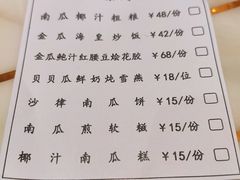 南瓜椰汁粗粮 ¥48/份
金瓜海皇炒饭 ¥42/份
金瓜鲍汁红腰豆烩花胶 ¥68/份
贝贝瓜鲜奶炖雪燕 ¥18/位
沙律南瓜饼 ¥15/份
南瓜煎软糍 ¥15/份
椰汁南瓜糕 ¥15/份